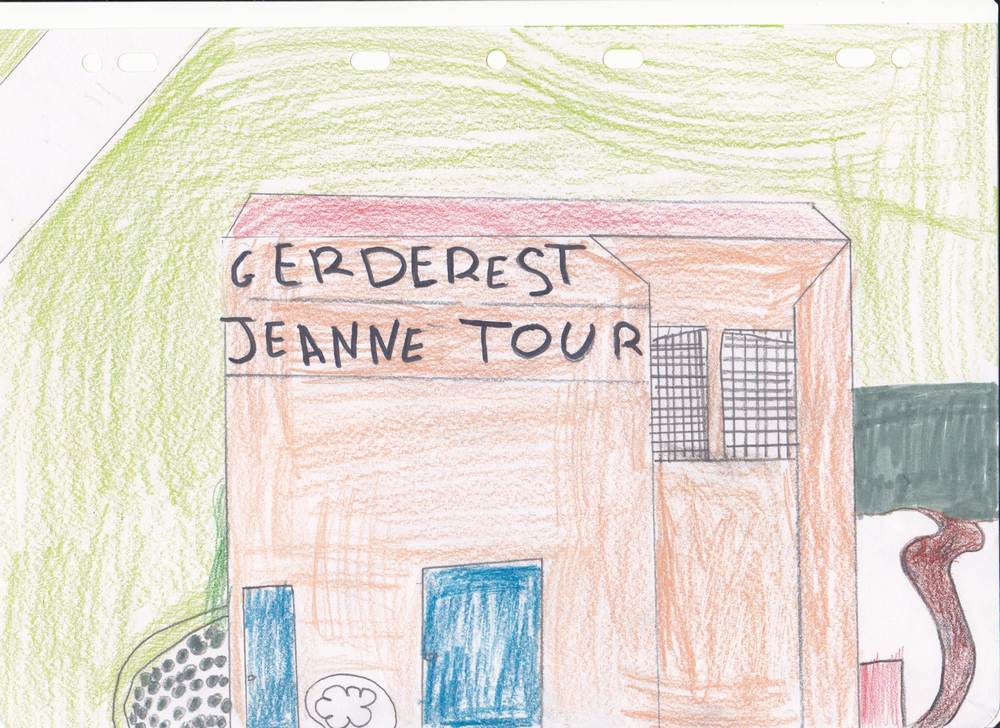 GERDEREST
JEANNE TOUR